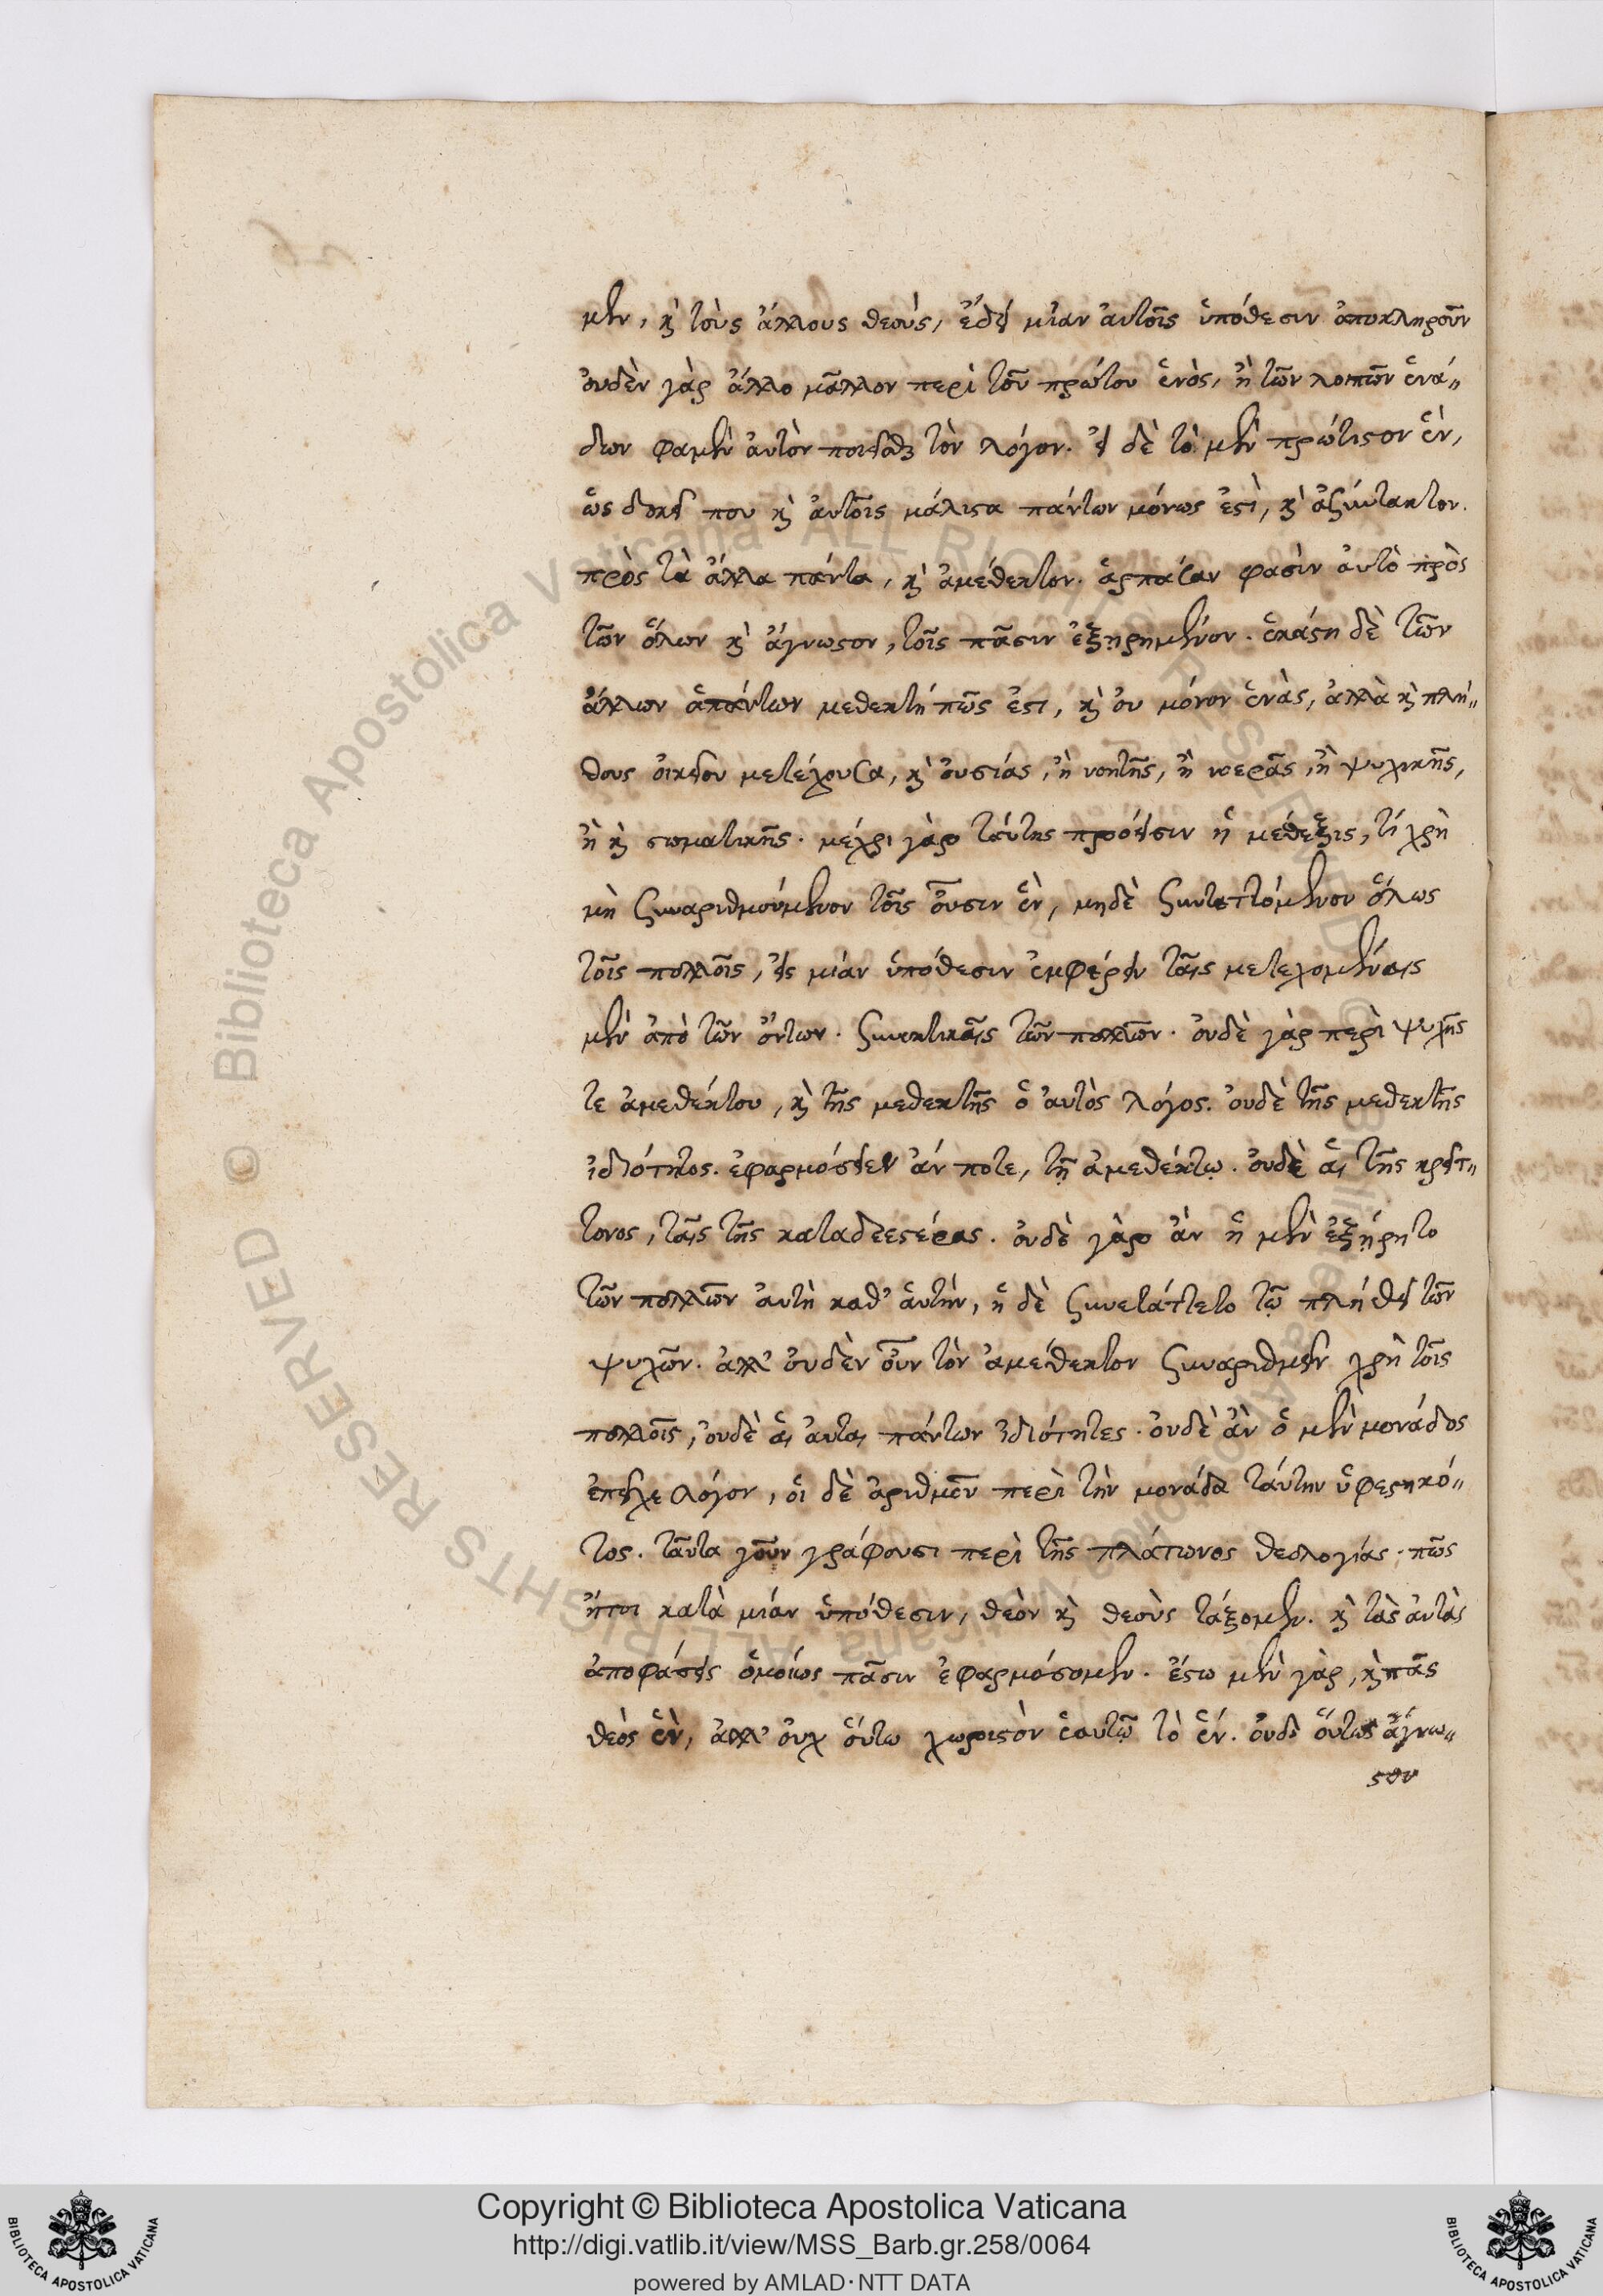 μὲν, καὶ τοὺς ἄλλους θεοὺς, ἔδει μίαν αὐτοῖς ὑπόθεσιν ἀποκληροῦν
οὐδὲν γὰρ ἄλλο μᾶλλον περὶ τοῦ πρώτου ἑνὸς, ἢ τῶν λοιπῶν ἑνά„
δων φαμὲν αὐτὸν ποιεῖσθαι τὸν λόγον. εἰ δὲ τὸ μὲν πρώτιστον ἓν,
ὥς δοκεῖ που καὶ αὐτοῖς μάλιστα πάντων μόνως ἐστὶ, καὶ ἀξύντακτον.
πρὸς τὰ ἄλλα πάντα, καὶ ἀμέθεκτον. ἁρπάσαν φασὶν αὐτὸ πρὸς
τῶν ὅλων καὶ ἄγνωστον, τοῖς πᾶσιν ἐξῃρημένον. ἑκάστη δὲ τῶν
ἄλλων ἁπάντων μεθεκτή πῶς ἐστι, καὶ οὐ μόνον ἑνὰς, ἀλλὰ καὶ πλή„
θους οἰκείου μετέχουσα, καὶ οὐσίας, ἢ νοητῆς, ἢ νοερᾶς, ἢ ψυχικῆς,
ἢ καὶ σωματικῆς. μέχρι γὰρ ταύτης πρόεισιν ἡ μέθεξις, τί χρὴ
μὴ ξυναριθμούμενον τοῖς οὖσιν ἓν, μηδὲ ξυνταττόμενον ὅλως
τοῖς πολλοῖς, εἰς μίαν ὑπόθεσιν ἐμφέρειν ταῖς μετεχομέναις
μὲν ἀπὸ τῶν ὄντων. ξυνεκτικαῖς τῶν πολλῶν. οὐδὲ γὰρ περὶ ψυχῆς
τε ἀμεθέκτου, καὶ τῆς μεθεκτῆς ὁ αὐτὸς λόγος. οὐδὲ τῆς μεθεκτῆς
ἰδιότητος. ἐφαρμόσειεν ἄν ποτε, τῇ ἀμεθέκτῳ. οὐδὲ αἱ τῆς κρείτ„
τονος, ταῖς τῆς καταδεεστέρας. οὐδὲ γὰρ ἂν ἡ μὲν ἐξῄρητο
τῶν πολλῶν αὐτὴ καθ' ἁυτὴν, ἡ δὲ ξυνετάττετο τῷ πλήθει τῶν
ψυχῶν. ἀλλ' οὐδὲν οὖν τὸν ἀμέθεκτον ξυναριθμεῖν χρὴ τοῖς
πολλοῖς, οὐδὲ αἱ αὐταὶ πάντων ἰδιότητες. οὐδὲ ἂν ὁ μὲν μονάδος
ἐπεῖχε λόγον, οἱ δὲ ἀριθμοῦ περὶ τὴν μονάδα ταύτην ὑφεστηκό„
τος. ταῦτα γοῦν γράφουσι περὶ τῆς πλάτωνος θεολογίας. πῶς
ἤτοι κατὰ μίαν ὑπόθεσιν, θεὸν καὶ θεοὺς τάξομεν. καὶ τὰς αὐτὰς
ἀποφάσεις ὁμοίως πᾶσιν ἐφαρμόσομεν. ἔστω μὲν γὰρ, καὶ πᾶς
θεὸς ἓν, ἀλλ' οὐχ οὕτω χωριστὸν ἑαυτῷ τὸ ἕν. οὐδὲ οὕτως ἄγνω„
στον